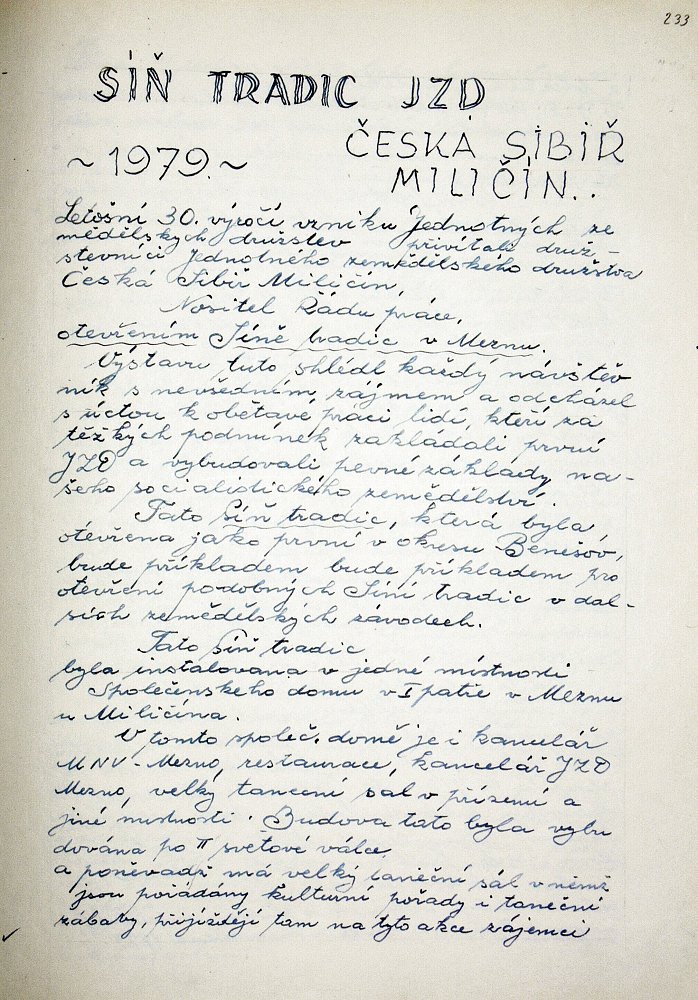 233
SÍŇ TRADIC JZD
~1979.~ ČESKÁ SIBIŘ
MILIČÍN..
Letošní 30. výročí vzniku Jednotných ze
mědělských družstev přivítali druž-
stevníci Jednotného zemědělského družstva
Česká Sibiř Miličín,
Nositel Řádu práce,
otevřením Síně tradic v Meznu.
Výstavu tuto shlédl každý návštěv
ník s nevšedním zájmem a odcházel
s úctou k obětavé práci lidí, kteří za
těžkých podmínek zakládali první
JZD a vybudovali pevné základy na-
šeho socialistického zemědělství.
Tato Síň tradic, která byla
otevřena jako první v okresu Benešov,
bude příkladem bude příkladem pro
otevření podobných Síní tradic v dal-
sích zemědělských závodech.
Tato Síň tradic
byla instalovana v jedné místnosti
Společenskeho domu v I patře v Meznu
u Miličína.
V tomto společ. domě je i kancelář
MNV-Mezno, restaurace, kancelář JZD
Mezno, velký taneční sál v přízemí a
jiné mistnosti. Budova tato byla vybu
dována po II světové válce
a poněvadž má velký taneční sál v němž
jsou pořádány kulturní pořady i taneční
zábavy, přijíždějí tam na tyto akce zájemci